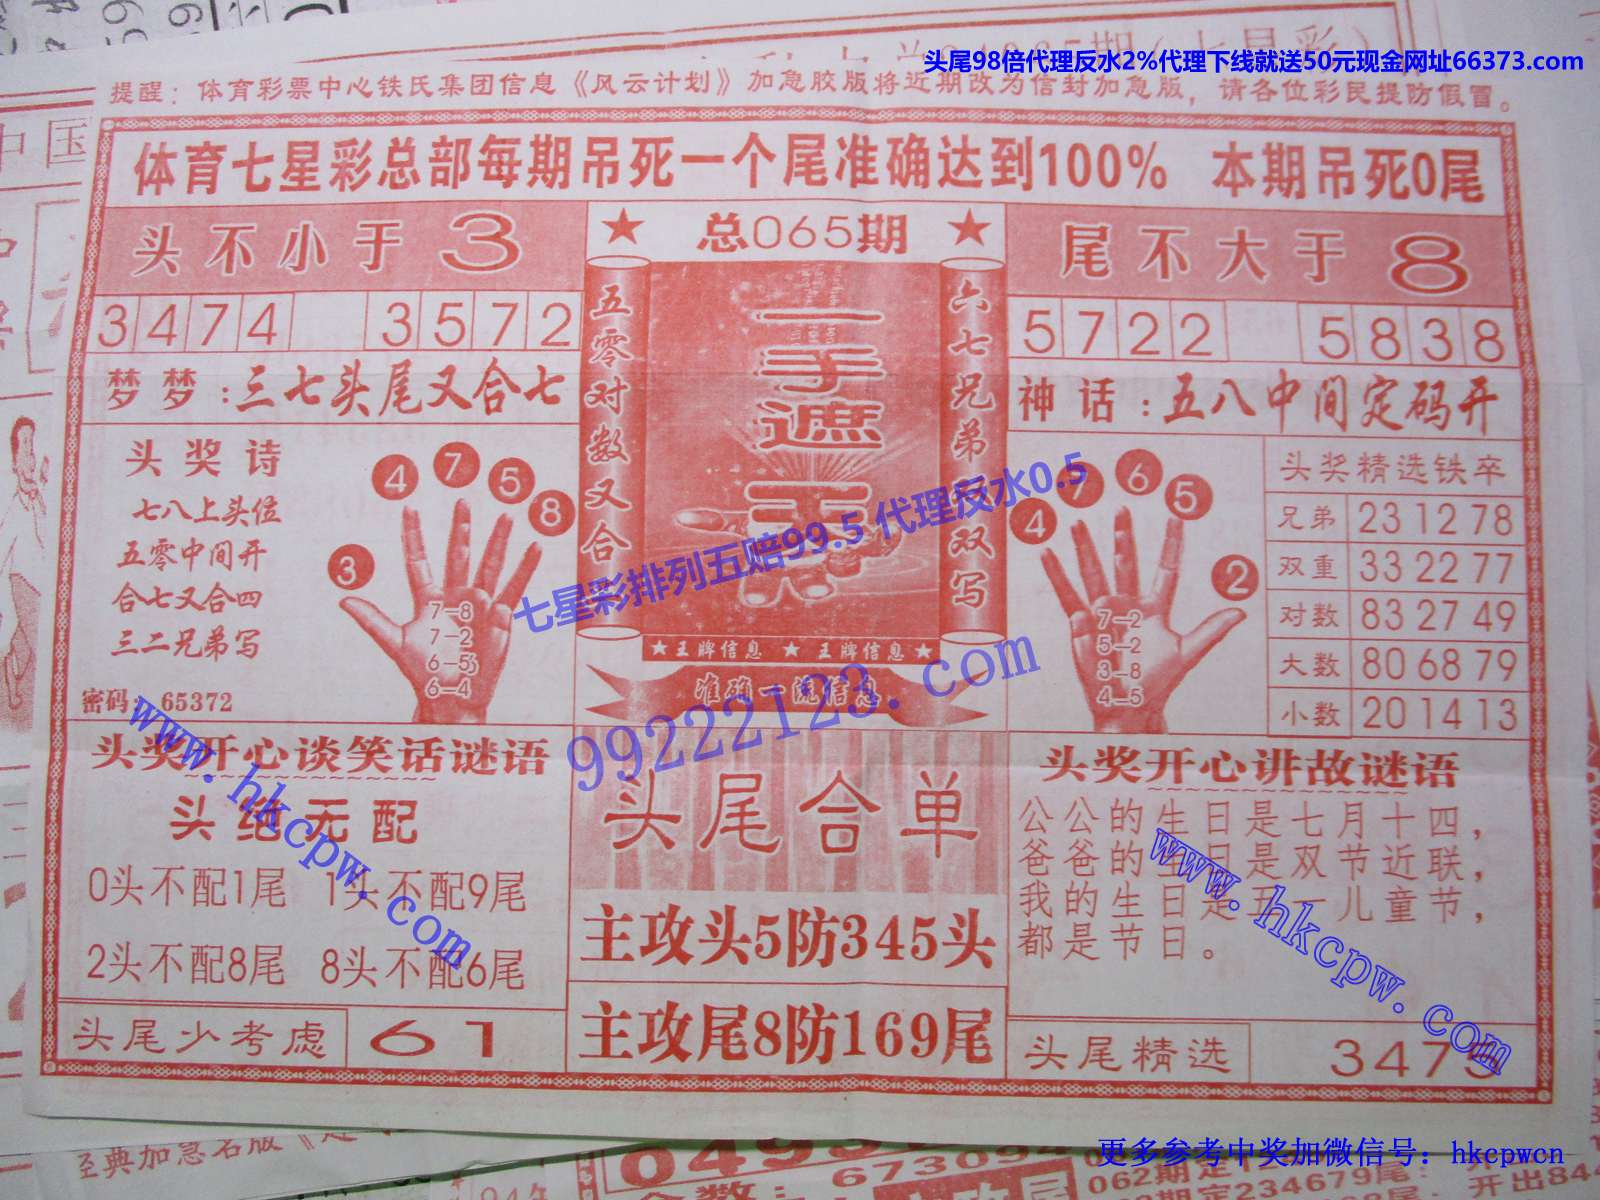 头尾98倍代理反水2%代理下线就送50元现金网址66373.com
提醒：体育彩票中心铁氏集团信息《风云计划》加急胶版将近期改为信封加急版，请各位彩民提防假冒。
中国
体育七星彩总部每期吊死一个尾准确达到100% 本期吊死0尾
头不小于3
★ 总065期 ★
尾不大于8
3474 3572
5722 5838
梦梦：三七头尾又合七
神话：五八中间定码开
五零对数又合
一手遮天
六七兄弟双写
头奖诗
七八上头位
五零中间开
合七又合四
三二兄弟写
密码：65372
3 4 7 5 8
7-8
7-2
6-5
6-4
4 7 6 5 2
7-2
5-2
3-8
4-5
头奖精选铁卒
兄弟 23 12 78
双重 33 22 77
对数 83 27 49
大数 80 68 79
小数 20 14 13
七星彩排列五赔99.5 代理反水0.5
★王牌信息 ★ 王牌信息★
准确一流信息
99222123.com
www.hkcpw.com
www.hkcpw.com
头奖开心谈笑话谜语
头绝无配
0头不配1尾 1头不配9尾
2头不配8尾 8头不配6尾
头尾少考虑 61
头尾合单
主攻头5防345头
主攻尾8防169尾
头奖开心讲故谜语
公公的生日是七月十四，
爸爸的生日是双节近联，
我的生日是五一儿童节，
都是节日。
头尾精选 3475
更多参考中奖加微信号：hkcpwcn
经典加急名版
673094
062期定
期定234679尾
开出84